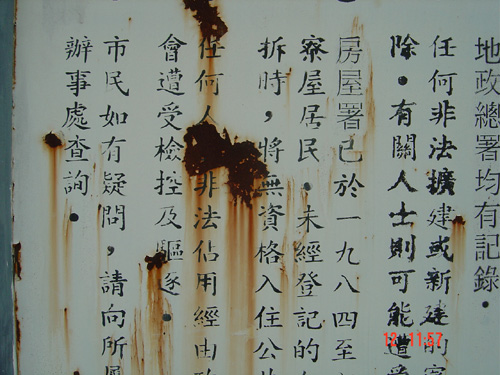 地政總署均有記錄。
任何非法擴建或新建的
除。有關人士則可能遭受
房屋署已於一九八四至
寮屋居民。未經登記的
拆時，將無資格入住公
任何人非法佔用經由
會遭受檢控及驅逐。
市民如有疑問，請向所屬
辦事處查詢。
11:57